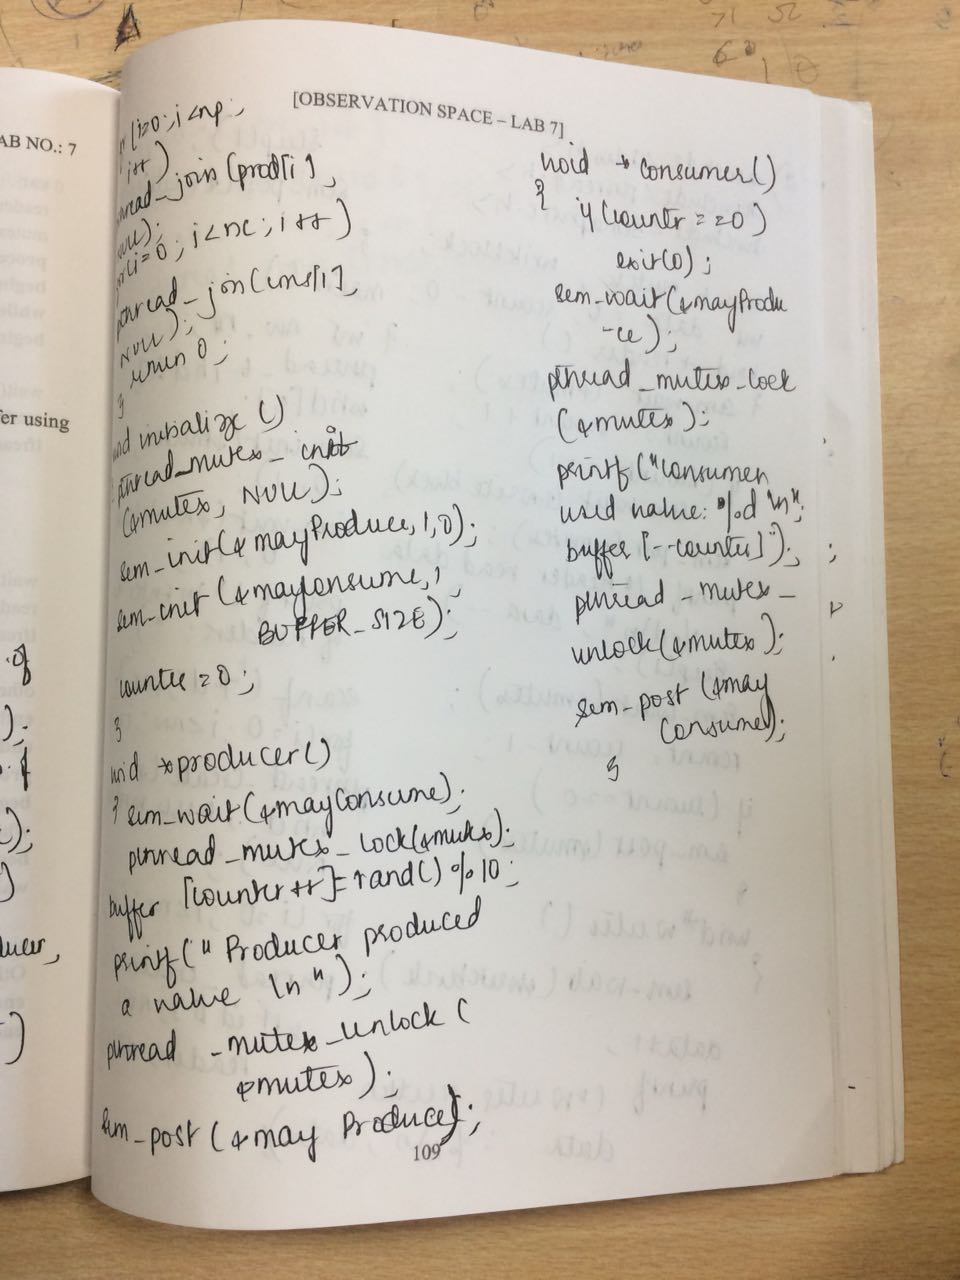 [OBSERVATION SPACE – LAB 7]
AB NO.: 7
er using
(i=0; i<np;
i++)
thread_join(prod[i],
NULL);
for(i=0; i<nc; i++)
pthread_join(cons[i],
NULL);
return 0;
}
void initialize()
pthread_mutex_init
(&mutex, NULL);
sem_init(&mayProduce,1,0);
sem_init(&mayConsume,1
BUFFER_SIZE);
counter = 0;
}
void *producer()
{ sem_wait(&mayConsume);
pthread_mutex_lock(&mutex);
buffer [counter++]=rand()%10;
printf("Producer produced
a value \n");
pthread _mutex_unlock(
&mutex);
sem_post(&may Produce);
void *consumer()
{ if(counter==0)
exit(0);
sem_wait(&mayProdu
-ce);
pthread_mutex_lock
(&mutex);
printf("Consumer
used value: %d \n",
buffer [--counter]);
pthread _mutex_
unlock(&mutex);
sem_post (&may
Consume);
}
109